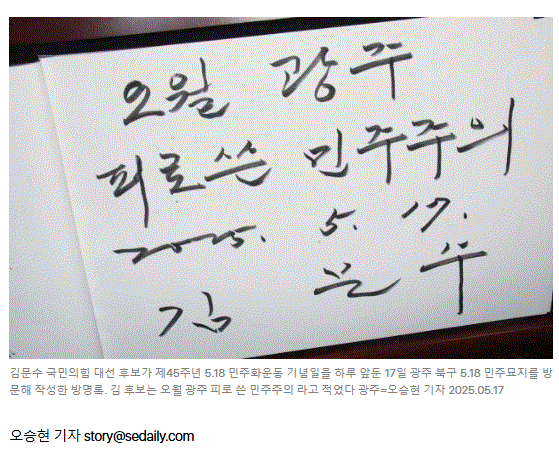 오월 광주
피로쓴 민주주의
2025. 5. 17.
김 문 수
김문수 국민의힘 대선 후보가 제45주년 5.18 민주화운동 기념일을 하루 앞둔 17일 광주 북구 5.18 민주묘지를 방
문해 작성한 방명록. 김 후보는 오월 광주 피로 쓴 민주주의 라고 적었다 광주=오승현 기자 2025.05.17
오승현 기자 story@sedaily.com